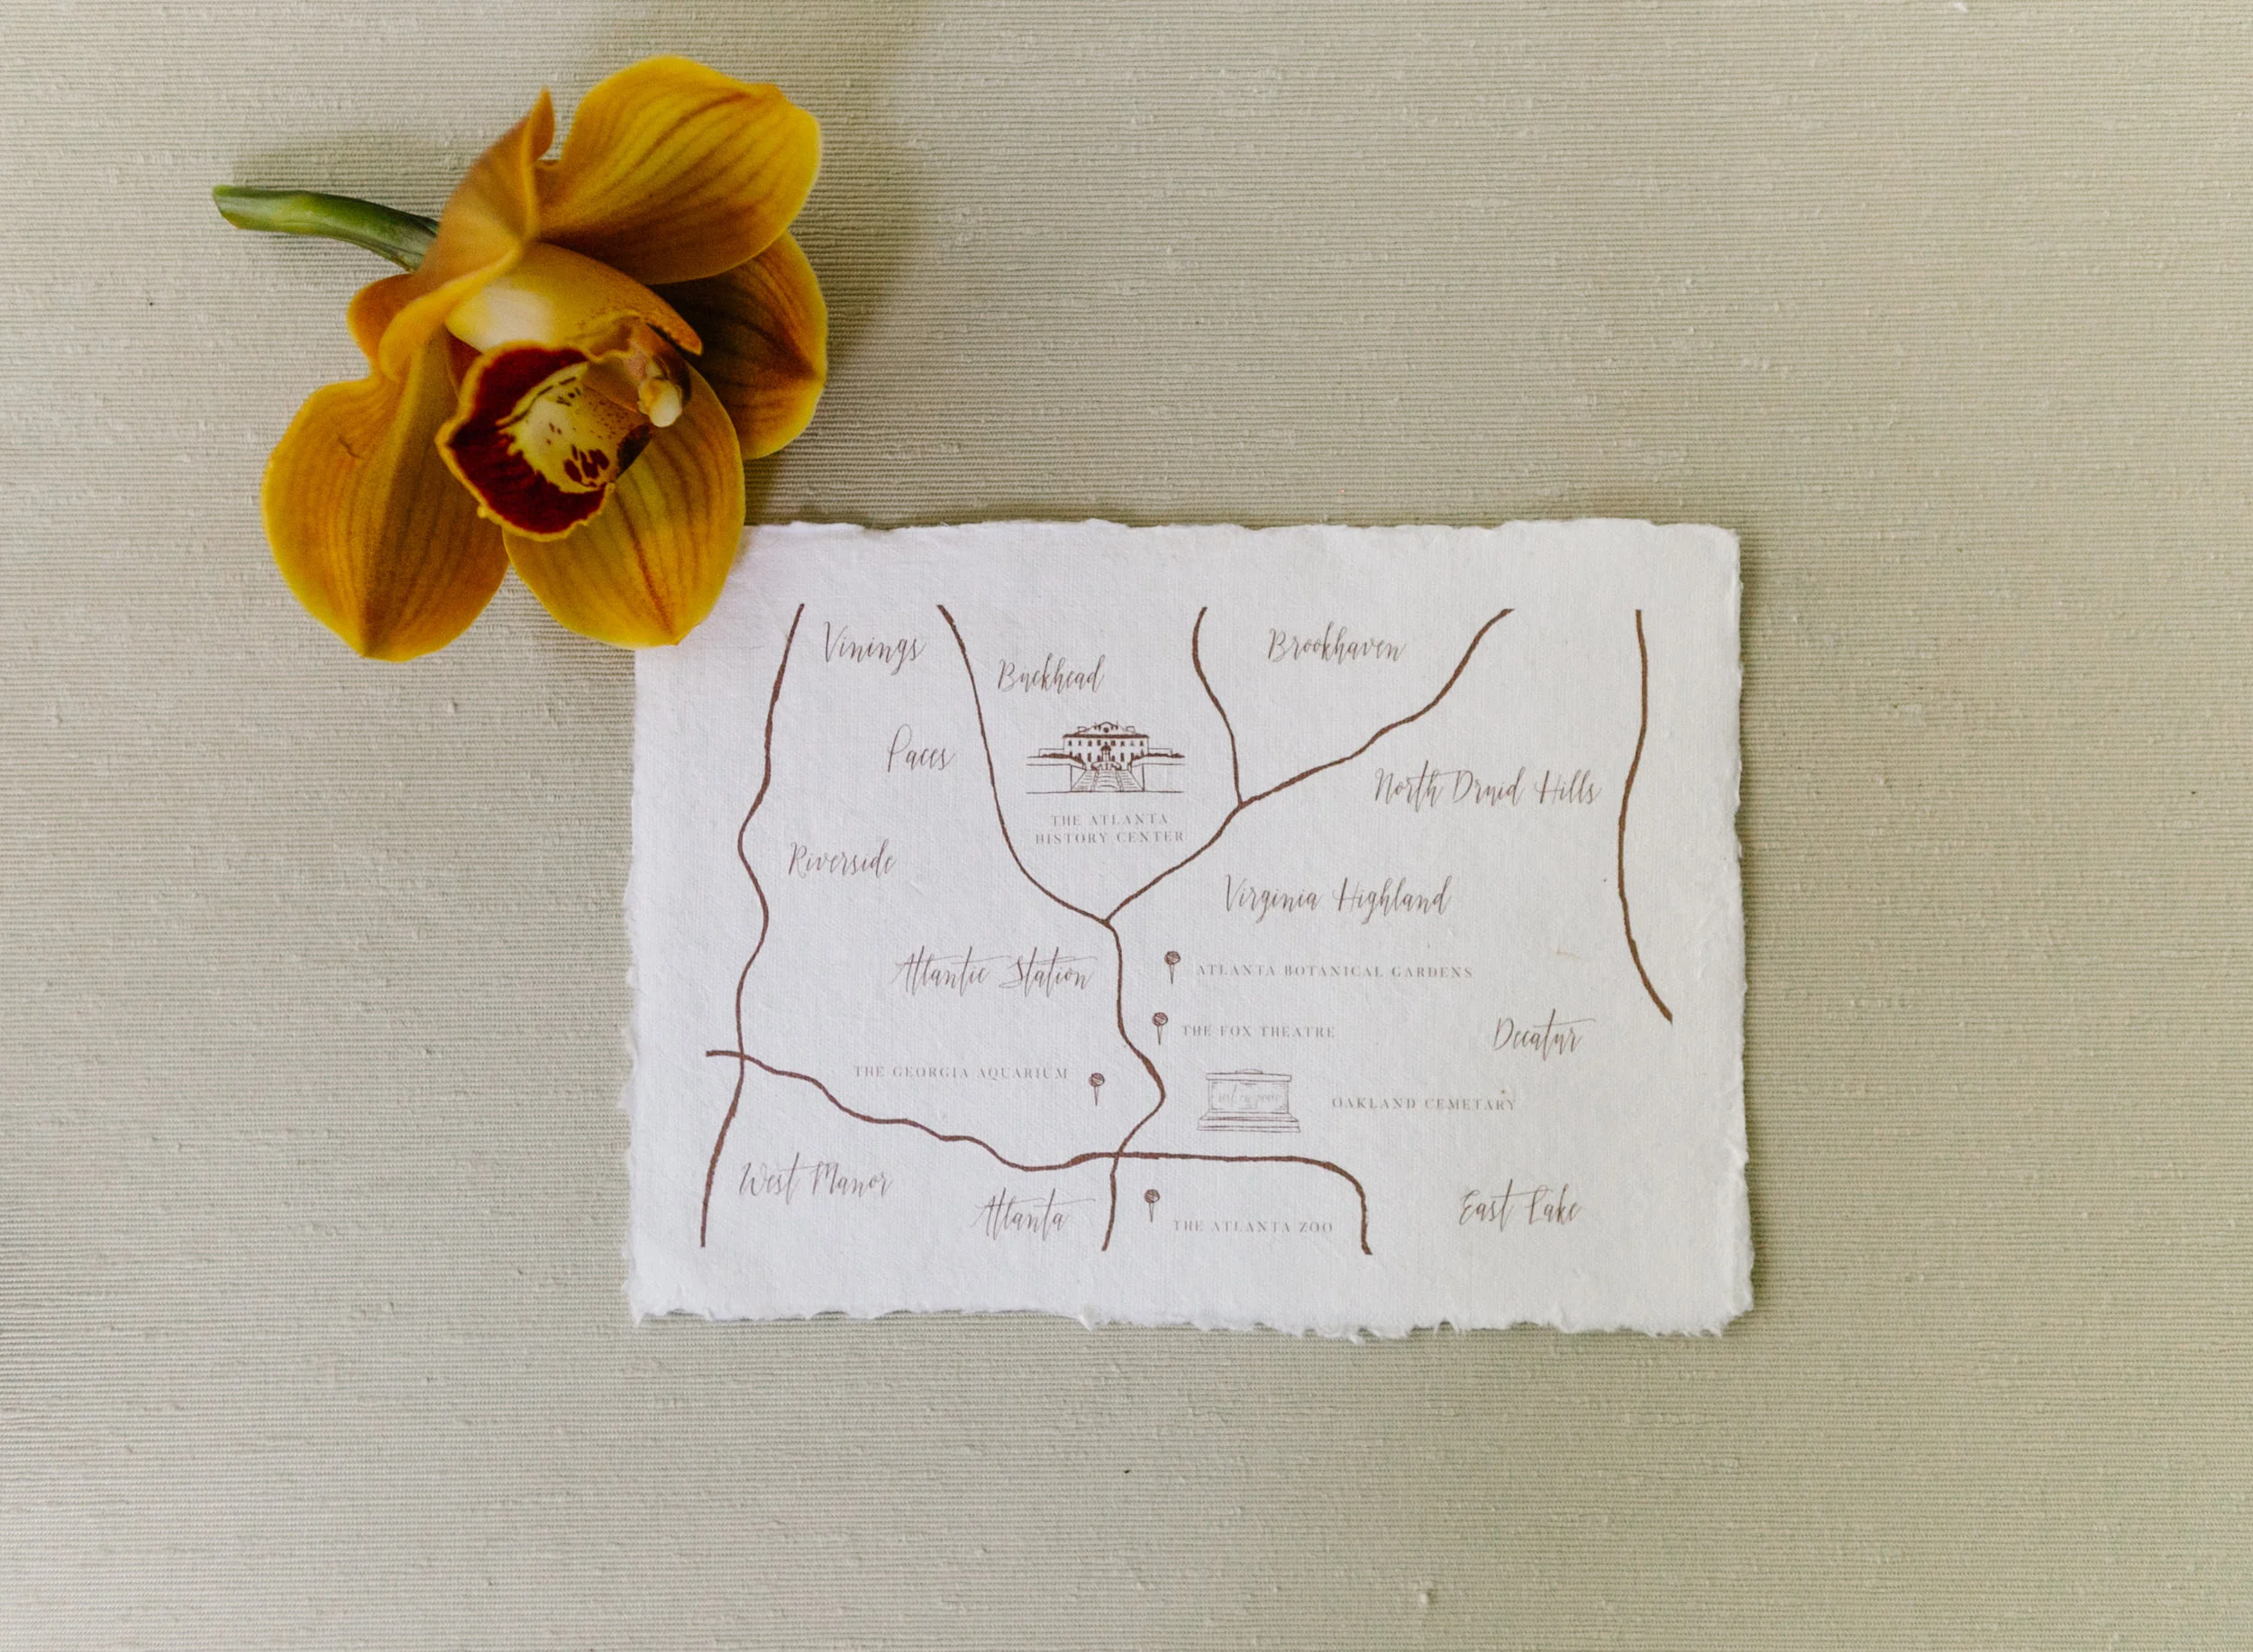 Vinings
Brookhaven
Buckhead
Paces
North Druid Hills
THE ATLANTA
HISTORY CENTER
Riverside
Virginia Highland
Atlantic Station
ATLANTA BOTANICAL GARDENS
THE FOX THEATRE
Decatur
THE GEORGIA AQUARIUM
OAKLAND CEMETARY
West Manor
Atlanta
THE ATLANTA ZOO
East Lake